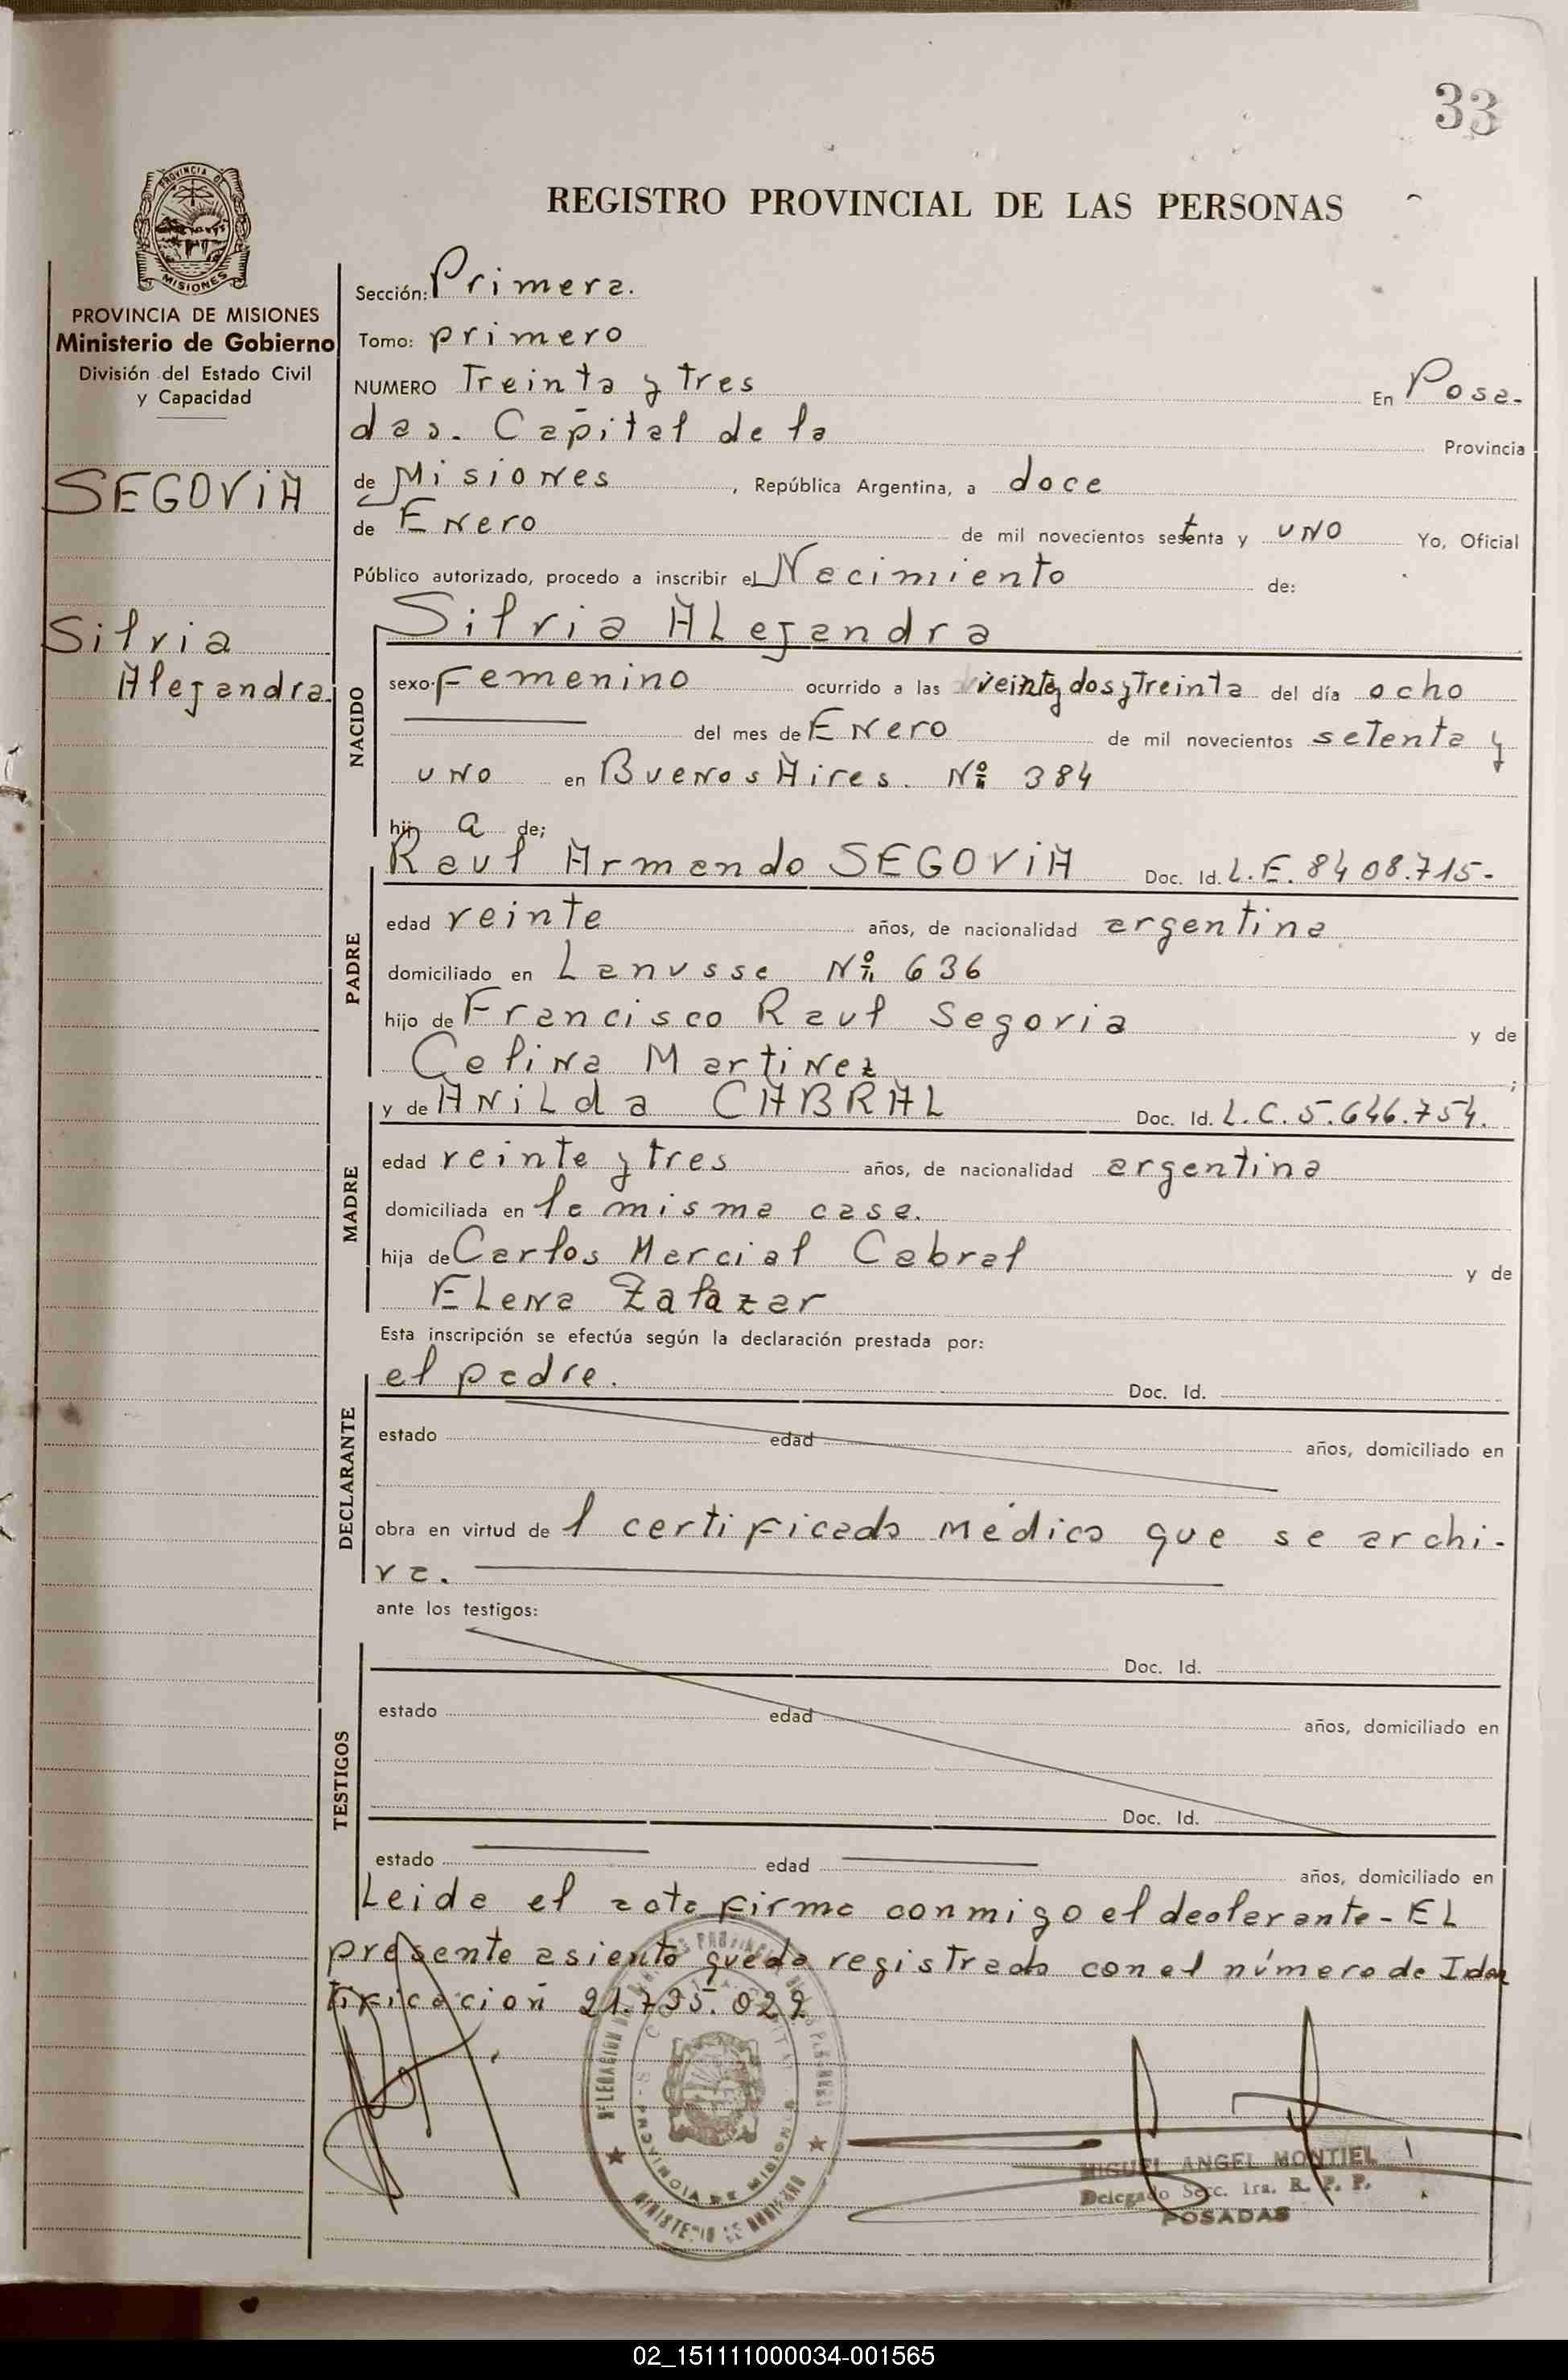 33
REGISTRO PROVINCIAL DE LAS PERSONAS
PROVINCIA DE MISIONES
PROVINCIA DE MISIONES
Ministerio de Gobierno
División del Estado Civil
y Capacidad
SEGOVIA
Silvia
Alejandra.
Sección: Primera.
Tomo: primero
NUMERO Treinta y Tres En Posa-
das. Capital de la Provincia
de Misiones, República Argentina, a doce
de Enero de mil novecientos setenta y uno Yo, Oficial
Público autorizado, procedo a inscribir el Nacimiento de:
Silvia Alejandra
NACIDO
sexo femenino ocurrido a las veinte y dos y treinta del día ocho
del mes de Enero de mil novecientos setenta y
uno en Buenos Aires. Nº 384
hij a de;
PADRE
Raul Armando SEGOVIA Doc. Id. L.E. 8408.715-
edad veinte años, de nacionalidad argentina
domiciliado en Lanusse Nº 636
hijo de Francisco Raul Segovia y de
Celina Martinez ;
MADRE
y de Anilda CABRAL Doc. Id. L.C. 5.646.754.
edad veinte y tres años, de nacionalidad argentina
domiciliada en la misma casa.
hija de Carlos Marcial Cabral y de
Elena Zalazar
Esta inscripción se efectúa según la declaración prestada por:
DECLARANTE
el padre. Doc. Id.
estado edad años, domiciliado en
obra en virtud de l certificado médico que se archi-
va.
ante los testigos:
TESTIGOS
Doc. Id.
estado edad años, domiciliado en
Doc. Id.
estado edad años, domiciliado en
Leida el acta firma conmigo el declarante- El
presente asiento queda registrado con el número de Iden
tificación 21.735.022
MINISTERIO DE GOBIERNO
PROVINCIA DE MISIONES
MIGUEL ANGEL MONTIEL
Delegado Secc. 1ra. R. P. P.
POSADAS
02_151111000034-001565